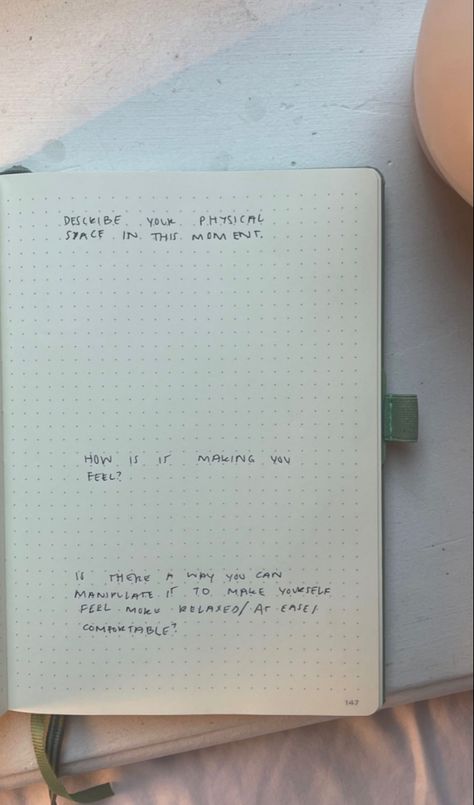 DESCRIBE YOUR PHYSICAL
SPACE IN THIS MOMENT.
HOW IS IT MAKING YOU
FEEL?
IS THERE A WAY YOU CAN
MANIPULATE IT TO MAKE YOURSELF
FEEL MORE RELAXED/ AT EASE/
COMFORTABLE?
147